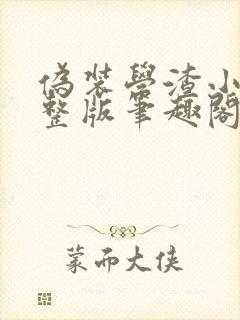 偽裝學渣小
整版筆趣閣
蒙面大侠